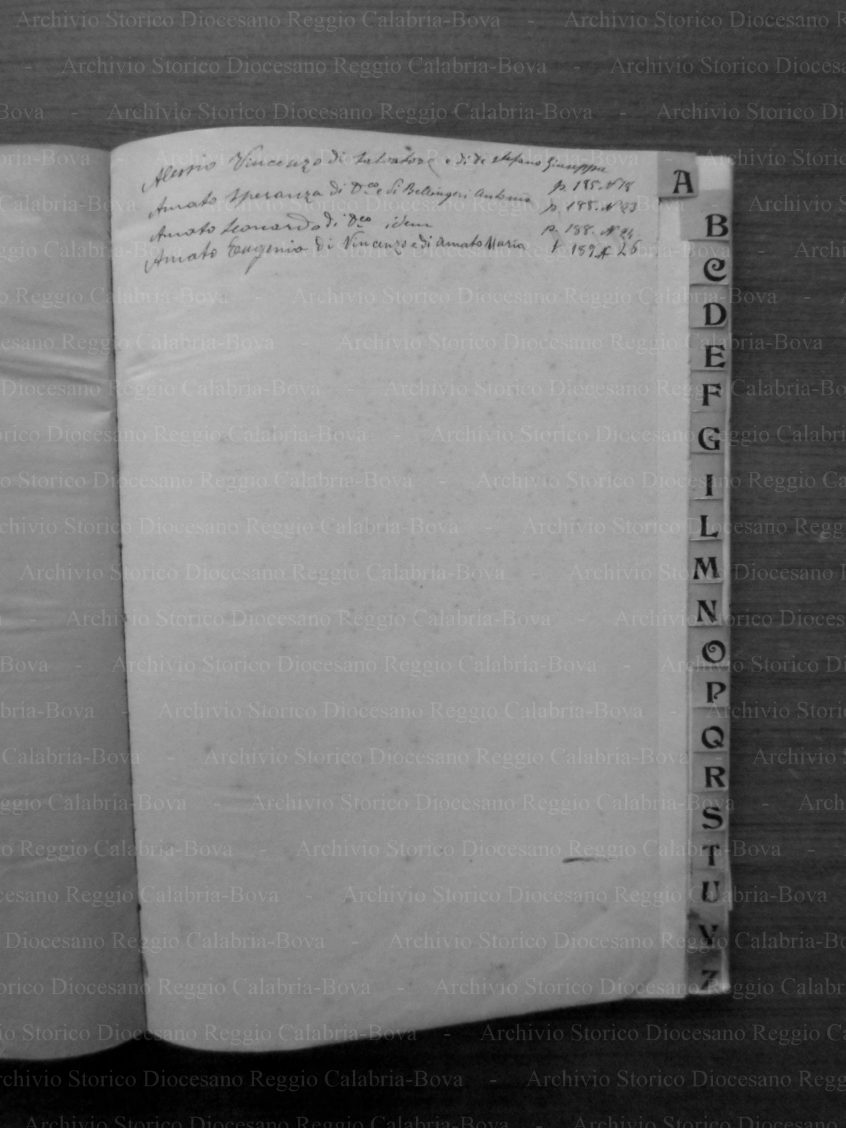 Alessio Vincenzo di Salvatore e di De Stefano Giuseppa p. 185. N 18
Amato Speranza di D.co e di Bellingeri Antonia p. 188. N 23
Amato Leonardo di D.co idem p. 188. N 24
Amato Eugenio di Vincenzo e di Amato Maria p. 189 N 26
A
B
C
D
E
F
G
I
L
M
N
O
P
Q
R
S
T
U
V
Z
Archivio Storico Diocesano Reggio Calabria-Bova